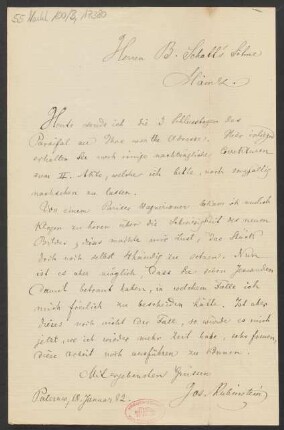 55 Nachl 100/B,
Herren B. Schott's Söhne
Mainz.
Heute sende ich die 3 Schlusslagen des
Parsifal an Ihre werthe Adresse.
erhalten Sie noch einige nachträgliche Correkturen
zum II. Akte, welche ich bitte, noch sorgfältig
nachsehen zu lassen.
Von einem Pariser Wagnerianer bekam ich neulich
Klagen zu hören über die Schwierigkeit des neuen
dies machte mir Lust, das Stück
doch noch selbst 4händig zu setzen. Nun
ist es aber möglich, dass Sie schon jemanden
damit betraut haben, in welchem Falle ich
mich freilich zu bescheiden hätte. Ist aber
dieses noch nicht der Fall, so würde es mich
jetzt, wo ich wieder mehr Zeit habe, sehr freuen,
diese Arbeit noch ausführen zu können.
Mit ergebensten Grüssen
Jos. Rubinstein
Palermo, 18. Januar 82.